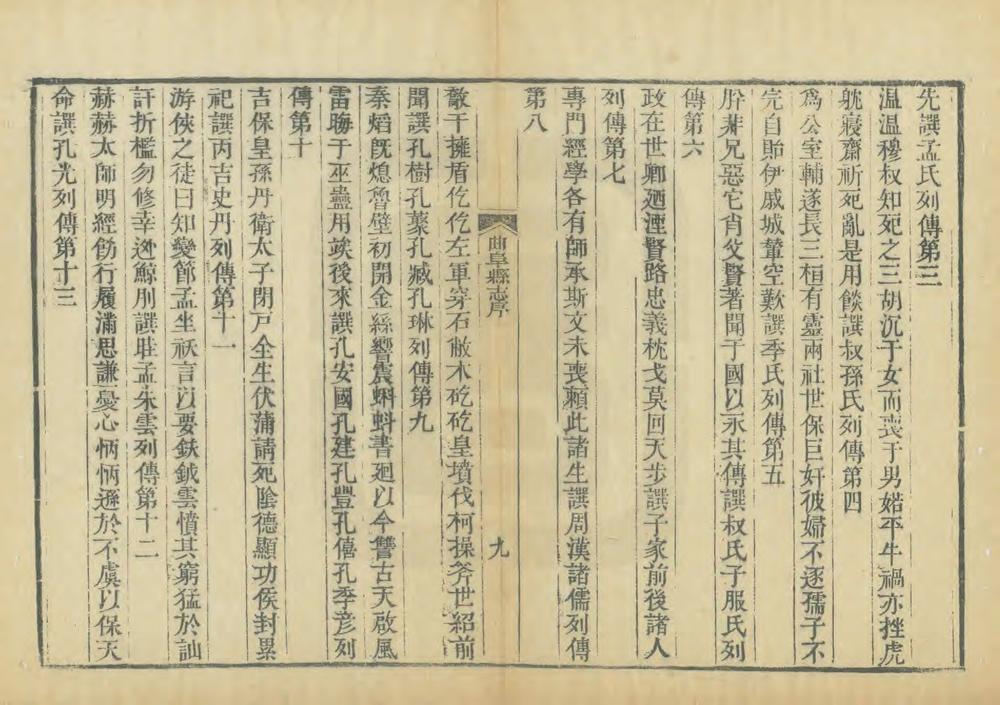 先譔孟氏列傳第三
溫溫穆叔知死之三胡沉于女而喪于男婼平牛禍亦挫虎
躭寢齋祈死亂是用餤譔叔孫氏列傳第四
爲公室輔遂長三桓有靈兩社世保巨奸彼婦不逐孺子不
完自貽伊戚城輦空歎譔季氏列傳第五
胖非兄惡它肖父賢著聞于國以永其傳譔叔氏子服氏列
傳第六
政在世卿廼湮賢路忠義枕戈莫回天步譔子家前後諸人
列傳第七
專門經學各有師承斯文未喪賴此諸生譔周漢諸儒列傳
第八
曲阜縣志序
九
敵干擁盾仡仡左軍穿石敝木矻矻皇墳伐柯操斧世紹前
聞譔孔樹孔蘽孔臧孔琳列傳第九
秦焰旣熄魯壁初開金絲響震蝌蚪書廻以今讐古天啟風
雷晦于巫蠱用竢後來譔孔安國孔建孔豐孔僖孔季彥列
傳第十
吉保皇孫丹衛太子閉戸全生伏蒲請死陰德顯功侯封累
祀譔丙吉史丹列傳第十一
游俠之徒曰知變節孟坐祅言以要鈇鉞雲憤其窮猛於訕
訐折檻勿修幸逊鯨刖譔眭孟朱雲列傳第十二
赫赫太師明經飭行履滿思謙憂心怲怲遜於不虞以保天
命譔孔光列傳第十三